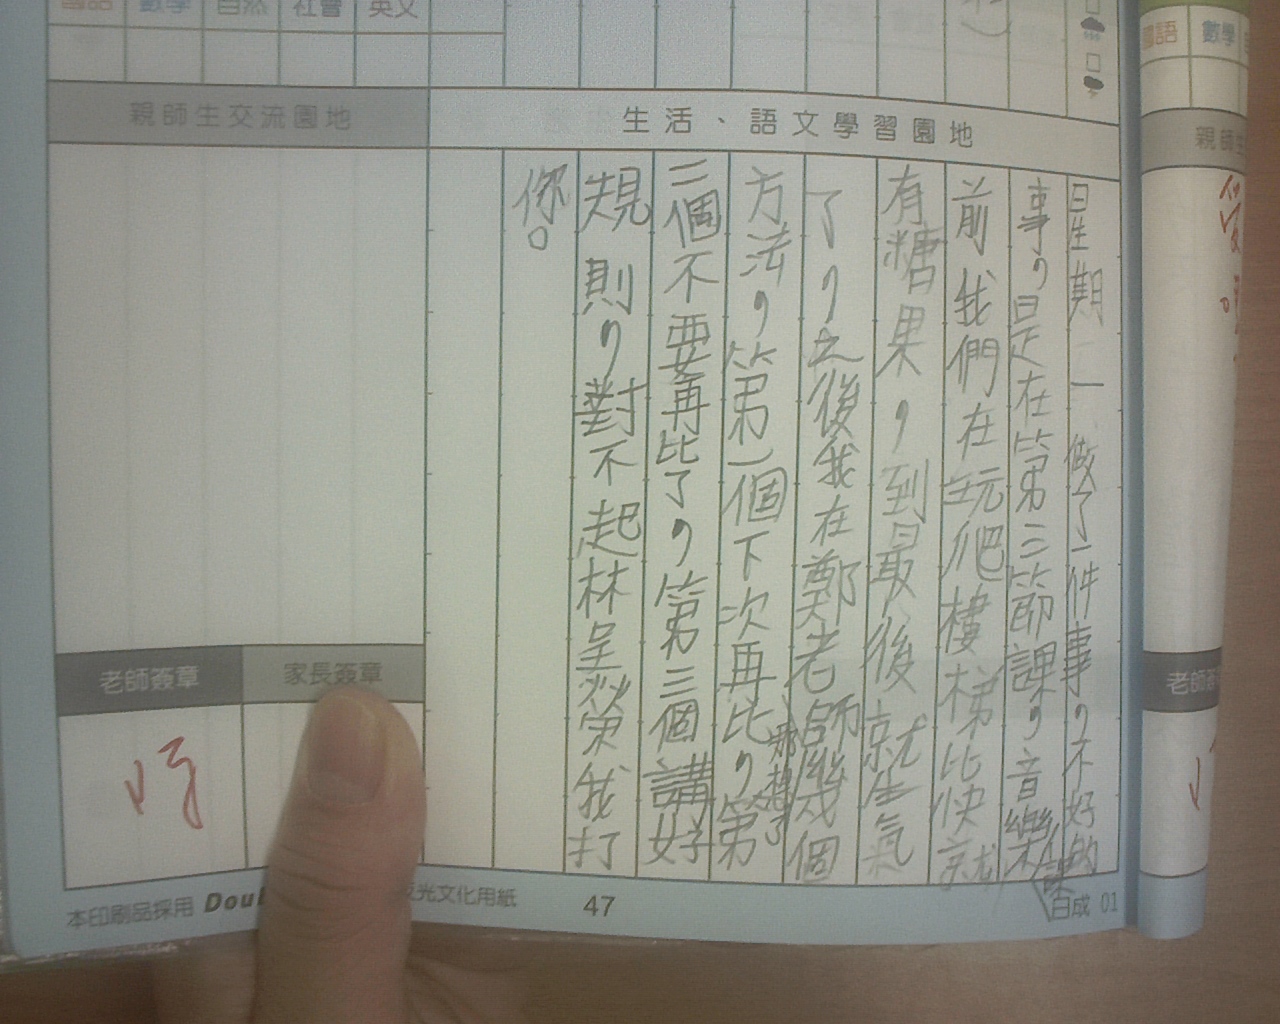 國語 數學 自然 社會 英文
親師生交流園地
生活、語文學習園地
星期一做了一件事,不好的
事,是在第三節課,音樂課
前我們在玩爬樓梯比快就
有糖果,到最後就生氣
了,之後我在鄭老師幾個
方法,第一個下次再比,第
二個不要再比了,第三個講好
規則,對不起林呈燊我打
你。
老師簽章 家長簽章
本印刷品採用 Dou 光文化用紙
47
百成 01
國語 數學
親師生
老師簽